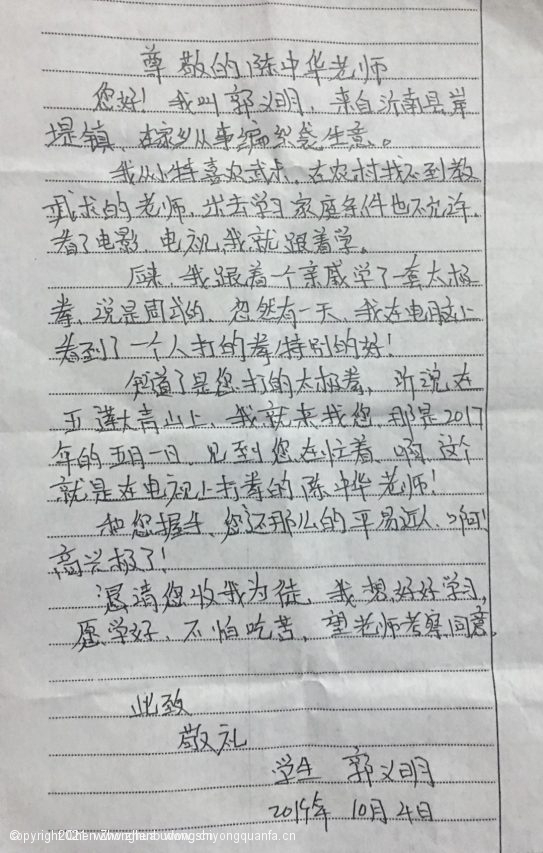 尊敬的陈中华老师
您好！我叫郭义明，来自济南县崔
堤镇，在家乡从事编织袋生意。
我从小特喜欢武术，在农村找不到教
武术的老师，出去学习家庭条件也不允许。
看了电影、电视，我就跟着学。
后来，我跟着一个亲戚学了一套太极
拳，说是周式的，忽然有一天，我在电脑上
看到了一个人打的拳特别的好！
知道了是您打的太极拳，听说在
五莲大青山上，我就来找您，那是2017
年的五月一日，见到您在忙着，啊，这个
就是在电视上打拳的陈中华老师！
和您握手，您还那么的平易近人，啊！
高兴极了！
恳请您收我为徒，我想好好学习，
愿学好，不怕吃苦，望老师考察同意。
此致
敬礼
学生 郭义明
2019年 10月4日